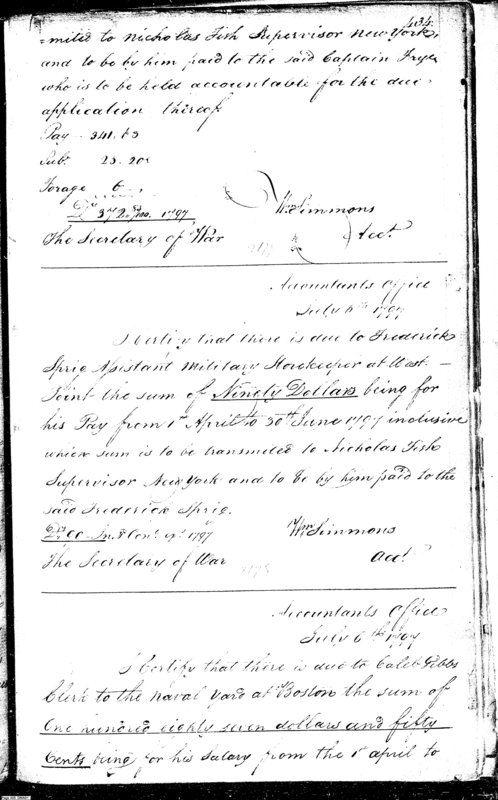 434
=mited to Nicholas Fish Supervisor New York,
and to be by him paid to the said Captain Frye
who is to be held accountable for the due
application thereof.
Pay - 341. 63
Sub: 23. 20
Forage 6
The Secretary of War
Wm Simmons
Acct
Accountants Office
July 6th 1797
I Certify that there is due to Frederick
Sprig Assistant Military Storekeeper at West -
Point the sum of Ninety Dollars being for
his Pay from 1st April to 30th June 1797 inclusive
which sum is to be transmitted to Nicholas Fish
Supervisor New York and to be by him paid to the
said Frederick Sprig.
1797
Wm Simmons
The Secretary of War
Acct
Accountants Office
July 6th 1797
I Certify that there is due to Caleb Gibbs
Clerk to the naval yard at Boston the sum of
One hundred eighty seven dollars and fifty
Cents being for his Salary from the 1st april to